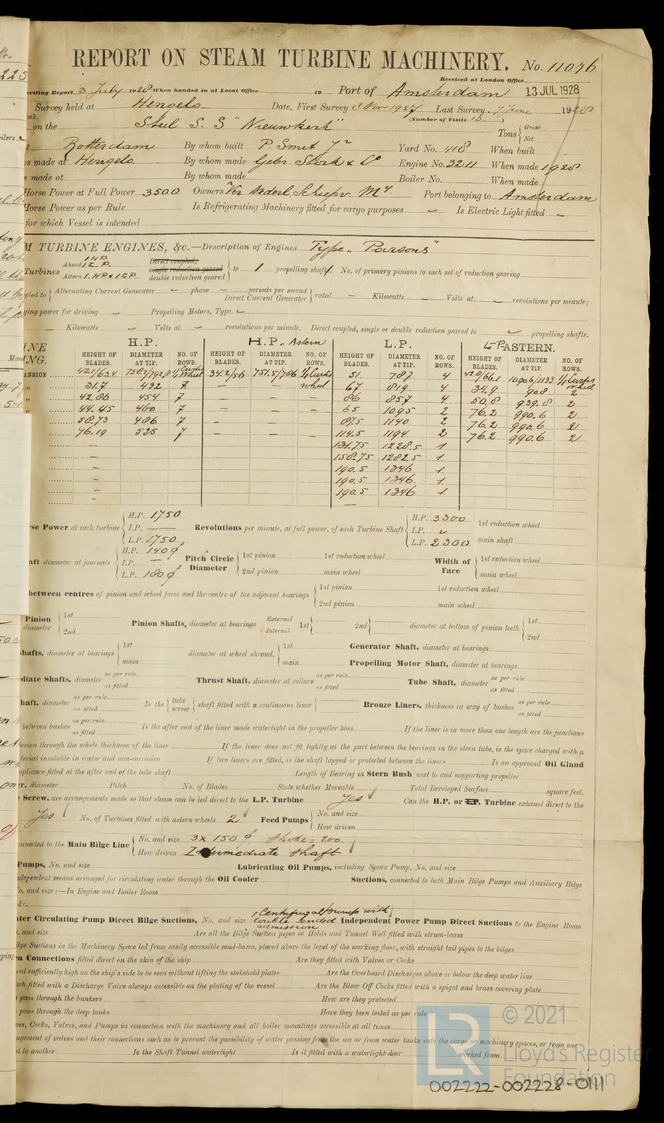 REPORT ON STEAM TURBINE MACHINERY. No. 11046
Received at London Office
writing Report 3 July 1928 When handed in at Local Office 19 Port of Amsterdam 13 JUL 1928
Survey held at Hengelo Date, First Survey Last Survey 7 June 1928
(Number of Visits
on the Steel S.S "Nieuwkerk" Tons { Gross Net
Rotterdam By whom built P. Smit Jr Yard No. 418 When built
s made at Hengelo By whom made Gebr. Stork & Co Engine No. 2211 When made 1928
s made at By whom made Boiler No. When made
Horse Power at Full Power 3500 Owners Port belonging to Amsterdam
Horse Power as per Rule Is Refrigerating Machinery fitted for cargo purposes - Is Electric Light fitted -
for which Vessel is intended
M TURBINE ENGINES, &c.—Description of Engines Type "Parsons"
Turbines Ahead Astern Direct coupled, single reduction geared double reduction geared } to 1 propelling shaft. No. of primary pinions to each set of reduction gearing
Alternating Current Generator - phase - periods per second
Direct Current Generator } rated - Kilowatts - Volts at - revolutions per minute;
ing power for driving - Propelling Motors, Type -
Kilowatts - Volts at - revolutions per minute. Direct coupled, single or double reduction geared to propelling shafts.
H.P. H.P. Astern L.P. L.P. ASTERN.
HEIGHT OF BLADES. DIAMETER AT TIP. NO. OF ROWS. HEIGHT OF BLADES. DIAMETER AT TIP. NO. OF ROWS. HEIGHT OF BLADES. DIAMETER AT TIP. NO. OF ROWS. HEIGHT OF BLADES. DIAMETER AT TIP. NO. OF ROWS.
ANSION 51 787 4
31.7 432 7 - - wheel 67 819 4 34.9 908 2
42.06 454 7 - - 86 857 4 50.8 939.8 2
44.45 460 7 - - 65 1095 2 76.2 990.6 2
58.73 486 7 - - 87.5 1140 2 76.2 990.6 2
76.19 525 7 - - 114.5 1194 2 76.2 990.6 2
1228.5 1
158.75 1282.5 1
190.5 1346 1
190.5 1346 1
190.5 1346 1
rse Power at each turbine { H.P. 1750 I.P. - L.P. 1750 Revolutions per minute, at full power, of each Turbine Shaft { H.P. 3300 I.P. L.P. 2300 1st reduction wheel main shaft
aft diameter at journals { H.P. 140 φ I.P. - L.P. 180 φ Pitch Circle Diameter { 1st pinion 2nd pinion 1st reduction wheel main wheel Width of Face { 1st reduction wheel main wheel
between centres of pinion and wheel faces and the centre of the adjacent bearings { 1st pinion 2nd pinion 1st reduction wheel main wheel
Pinion diameter { 1st 2nd Pinion Shafts, diameter at bearings External Internal } 1st 2nd diameter at bottom of pinion teeth { 1st 2nd
hafts, diameter at bearings { 1st main diameter at wheel shroud, { 1st main Generator Shaft, diameter at bearings
Propelling Motor Shaft, diameter at bearings
diate Shafts, diameter as per rule as fitted Thrust Shaft, diameter at collars as per rule as fitted Tube Shaft, diameter as per rule as fitted
haft, diameter as per rule as fitted Is the { tube screw } shaft fitted with a continuous liner { Bronze Liners, thickness in way of bushes as per rule as fitted
between bushes as per rule as fitted Is the after end of the liner made watertight in the propeller boss If the liner is in more than one length are the junctions
sion through the whole thickness of the liner If the liner does not fit tightly at the part between the bearings in the stern tube, is the space charged with a
terial insoluble in water and non-corrosive If two liners are fitted, is the shaft lapped or protected between the liners Is an approved Oil Gland
ppliance fitted at the after end of the tube shaft Length of Bearing in Stern Bush next to and supporting propeller
r, diameter Pitch No. of Blades State whether Moveable Total Developed Surface square feet.
Screw, are arrangements made so that steam can be led direct to the L.P. Turbine Yes Can the H.P. or I.P. Turbine exhaust direct to the
Yes No. of Turbines fitted with astern wheels 2 Feed Pumps { No. and size How driven
onnected to the Main Bilge Line { No. and size 3 x 150 φ stroke = 200 How driven Intermediate shaft
Pumps, No. and size Lubricating Oil Pumps, including Spare Pump, No. and size
ndependent means arranged for circulating water through the Oil Cooler Suctions, connected to both Main Bilge Pumps and Auxiliary Bilge
o. and size:—In Engine and Boiler Room
&c.
ater Circulating Pump Direct Bilge Suctions, No. and size 1 Centrifugal pump with double ended admission Independent Power Pump Direct Suctions to the Engine Room
. and size Are all the Bilge Suction pipes in Holds and Tunnel Well fitted with strum-boxes
lge Suctions in the Machinery Space led from easily accessible mud-boxes, placed above the level of the working floor, with straight tail pipes to the bilges
n Connections fitted direct on the skin of the ship Are they fitted with Valves or Cocks
ed sufficiently high on the ship's side to be seen without lifting the stokehold plates Are the Overboard Discharges above or below the deep water line
ach fitted with a Discharge Valve always accessible on the plating of the vessel Are the Blow Off Cocks fitted with a spigot and brass covering plate
pass through the bunkers How are they protected
pass through the deep tanks Have they been tested as per rule
pes, Cocks, Valves, and Pumps in connection with the machinery and all boiler mountings accessible at all times
ngement of valves and their connections such as to prevent the possibility of water passing from the sea or from water tanks into the cargo or machinery spaces, or from one
t to another Is the Shaft Tunnel watertight Is it fitted with a watertight door worked from
© 2021
Lloyd's Register
Foundation
002222-002228-0111